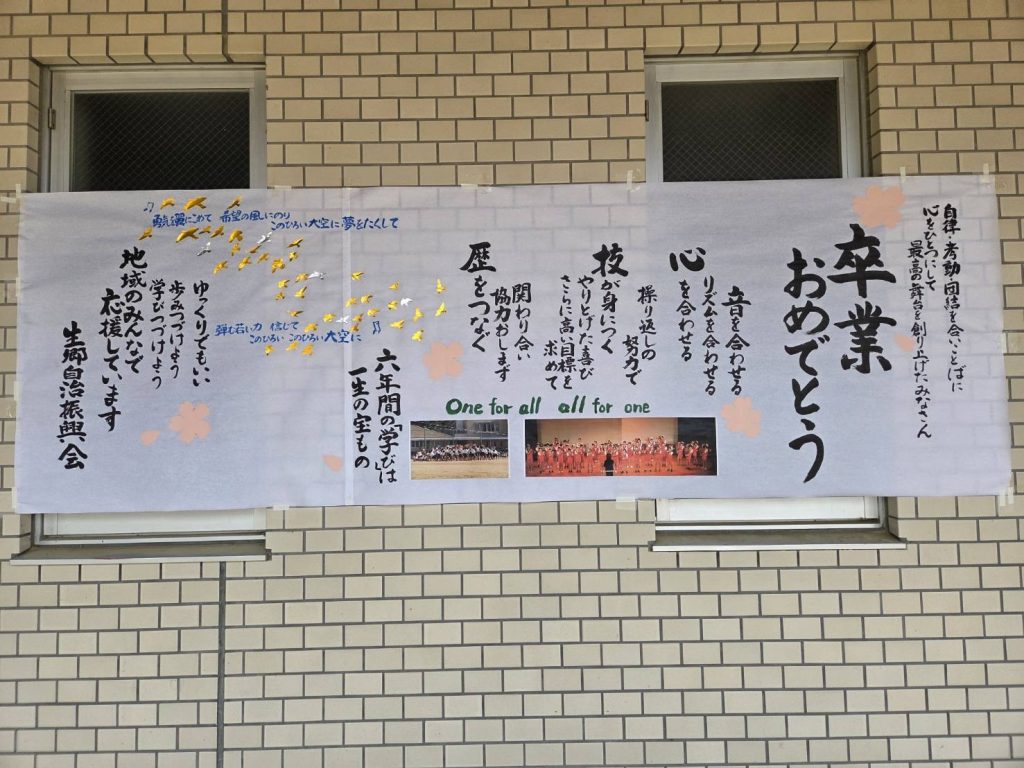 自律・考動・団結を合いことばに
心をひとつにして
最高の舞台を創り上げたみなさん
卒業
おめでとう
音を合わせる
リズムを合わせる
心を合わせる
操り返しの
努力で
技が身につく
やりとげた喜び
さらに高い目標を
求めて
関わり合い
協力おしまず
歴をつなぐ
One for all all for one
六年間の「学び」は
一生の宝もの
勇気を翼にこめて 希望の風にのり
このひろい大空に 夢をたくして
弾む若い力 信じて
このひろい このひろい 大空に
ゆっくりでもいい
歩みつづけよう
学びつづけよう
地域のみんなで
応援しています
生郷自治振興会